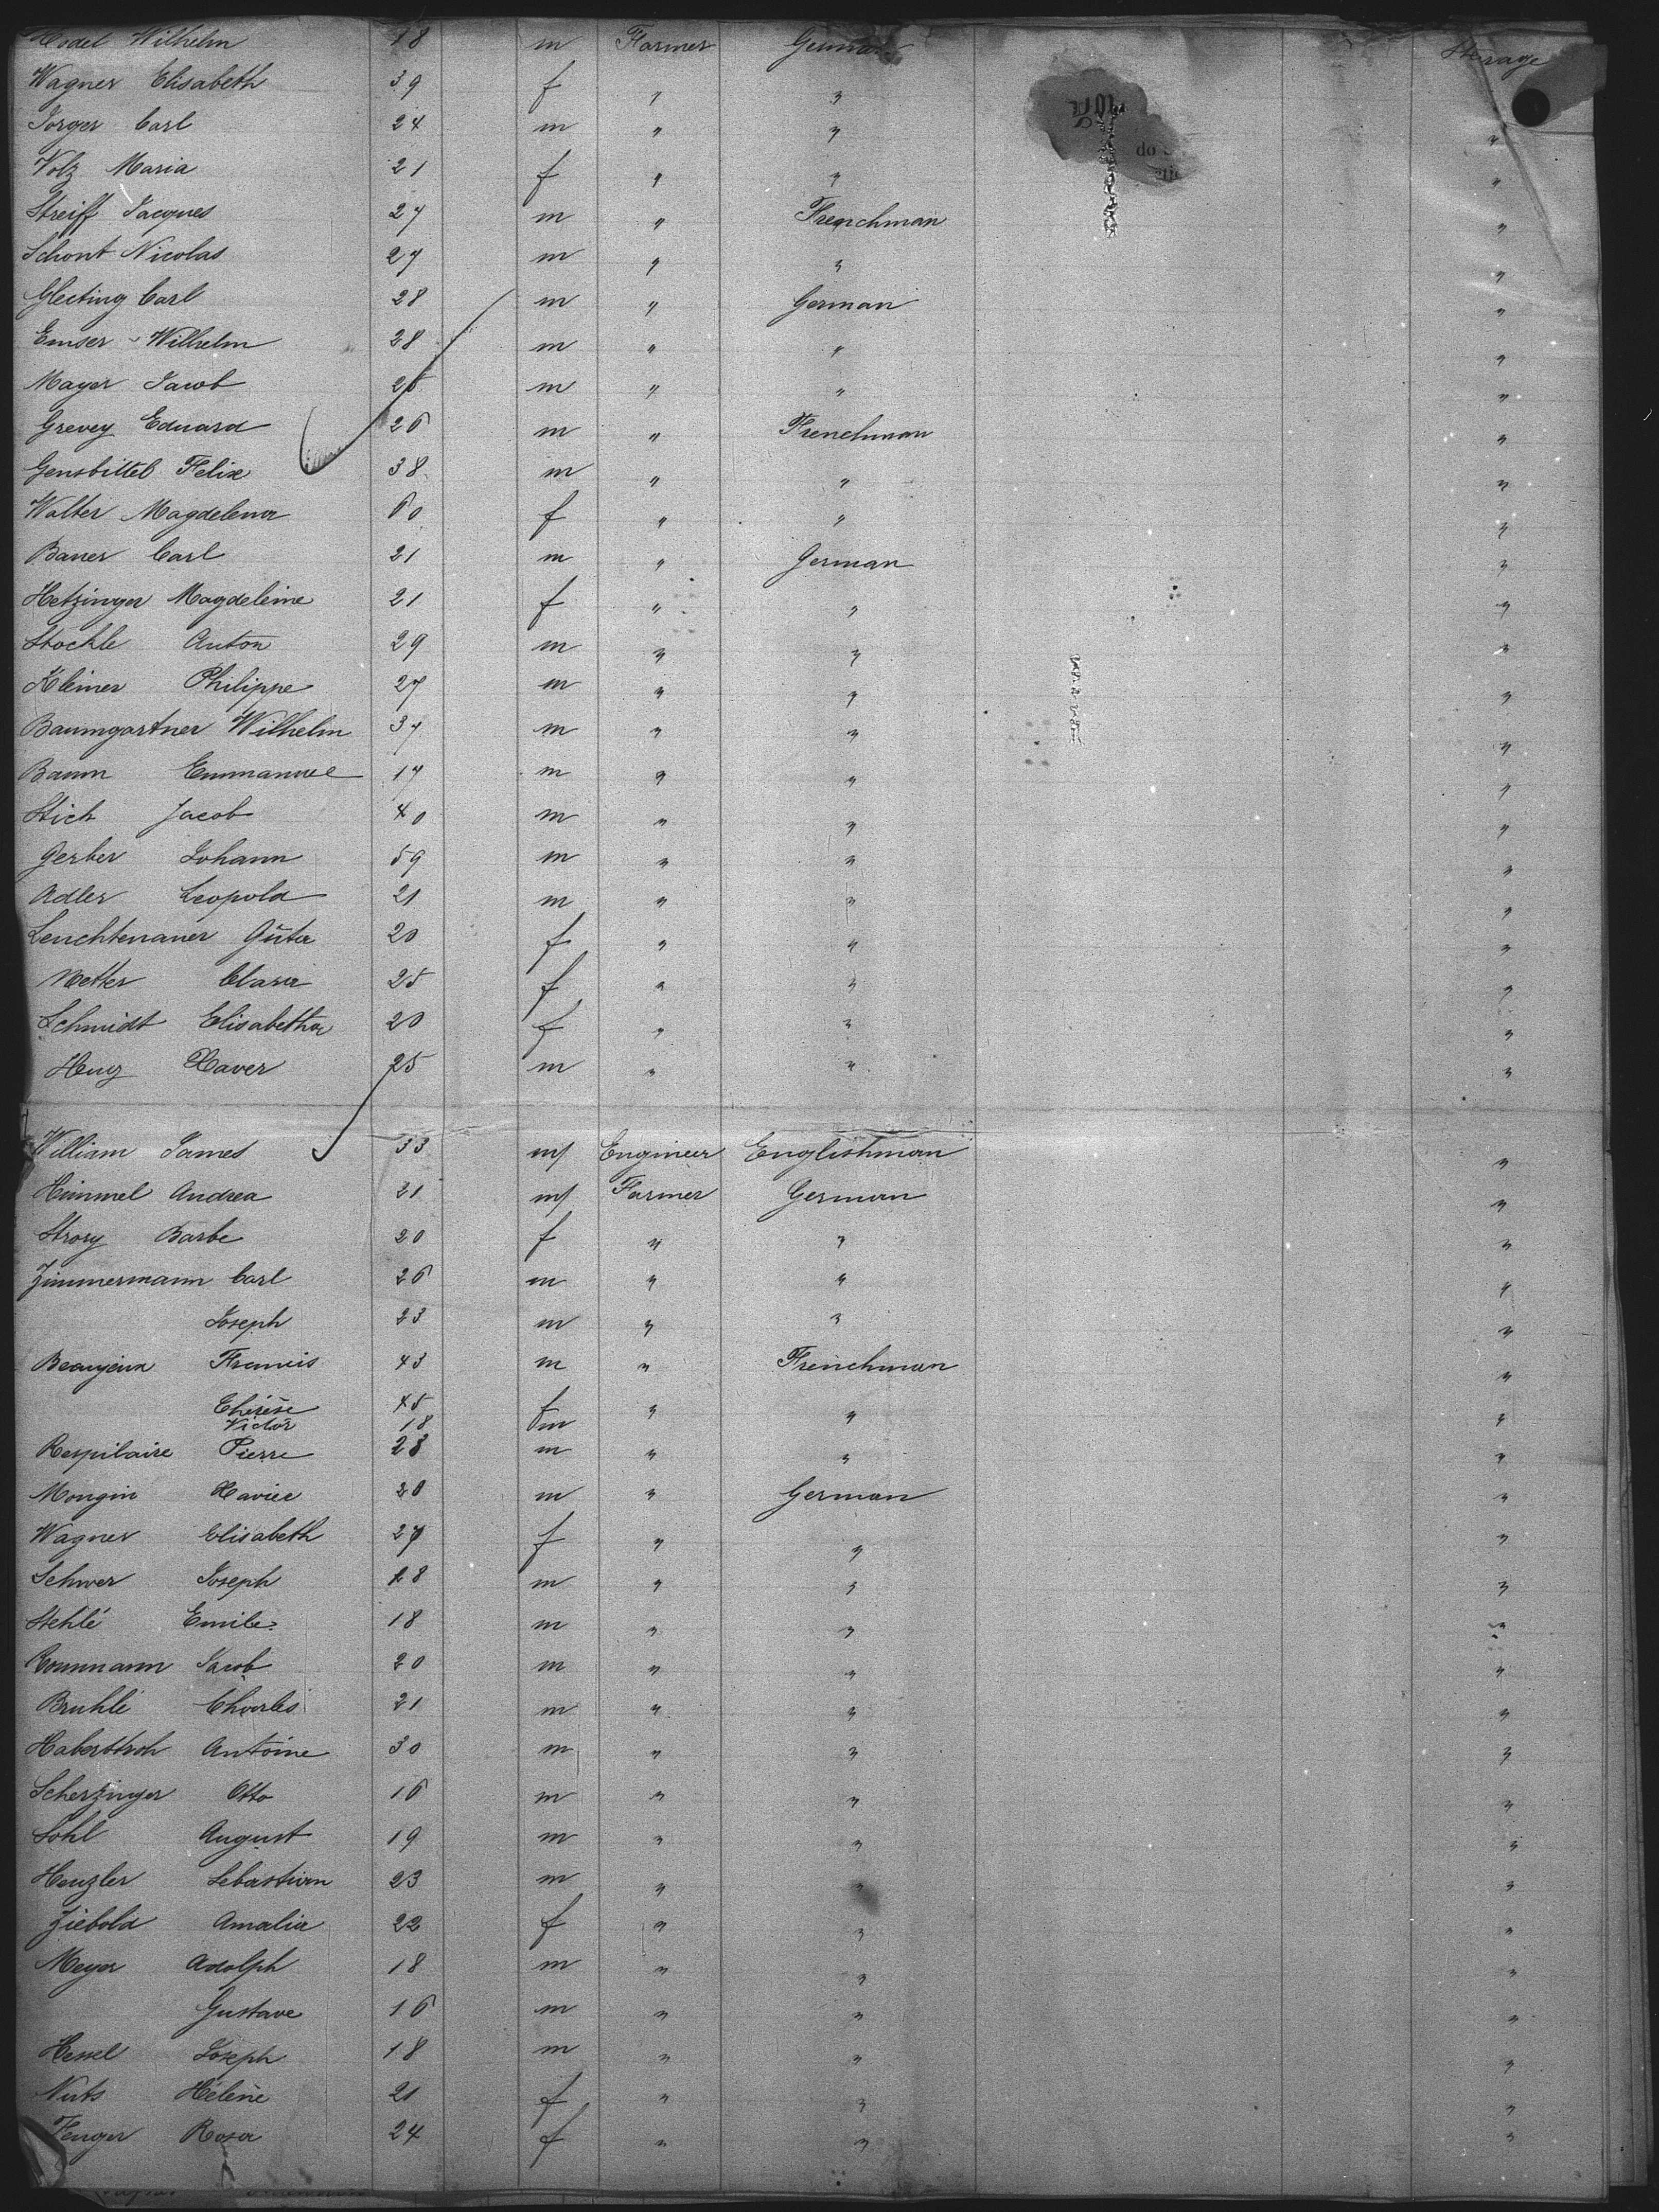 Hodel Wilhelm 18 m Farmer German Sterage
Wagner Elisabeth 39 f " " "
Jorger Carl 24 m " " "
Volz Maria 21 f " " "
Streiff Jacques 27 m " Frenchman "
Schont Nicolas 27 m " " "
Glecting Carl 28 m " German "
Emser Wilhelm 28 m " " "
Mayer Jacob 25 m " " "
Grevey Eduard 26 m " Frenchman "
Gensbittel Felix 38 m " " "
Walter Magdelena 60 f " " "
Baner Carl 21 m " German "
Hetzinger Magdeleine 21 f " " "
Stockle Anton 29 m " " "
Kleiner Philippe 27 m " " "
Baumgartner Wilhelm 37 m " " "
Baum Emmanuel 17 m " " "
Stich Jacob 40 m " " "
Gerber Johann 59 m " " "
Adler Leopold 21 m " " "
Leuchtenauer Güta 20 f " " "
Metter Clara 25 f " " "
Schmidt Elisabetha 20 f " " "
Heug Xaver 25 m " " "
William James 33 m Engineer Englishman "
Himmel Andrea 21 m Farmer German "
Strory Barbe 20 f " " "
Zimmermann Carl 26 m " " "
Joseph 23 m " " "
Beaujeux Francis 43 m " Frenchman "
Thérèse 45 f " " "
Victor 18 m
Respilaire Pierre 28 m " " "
Mongin Xavier 20 m " German "
Wagner Elisabeth 27 f " " "
Schwer Joseph 18 m " " "
Stehlé Emile 18 m " " "
Rommann Jacob 20 m " " "
Bruhlé Charles 21 m " " "
Haberstroh Antoine 30 m " " "
Scherzinger Otto 16 m " " "
Sohl August 19 m " " "
Henzler Sebastian 23 m " " "
Ziebold Amalia 22 f " " "
Meyer Adolph 18 m " " "
Gustave 16 m " " "
Hessel Joseph 18 m " " "
Nuts Hélène 21 f " " "
Fenger Rosa 24 f " " "